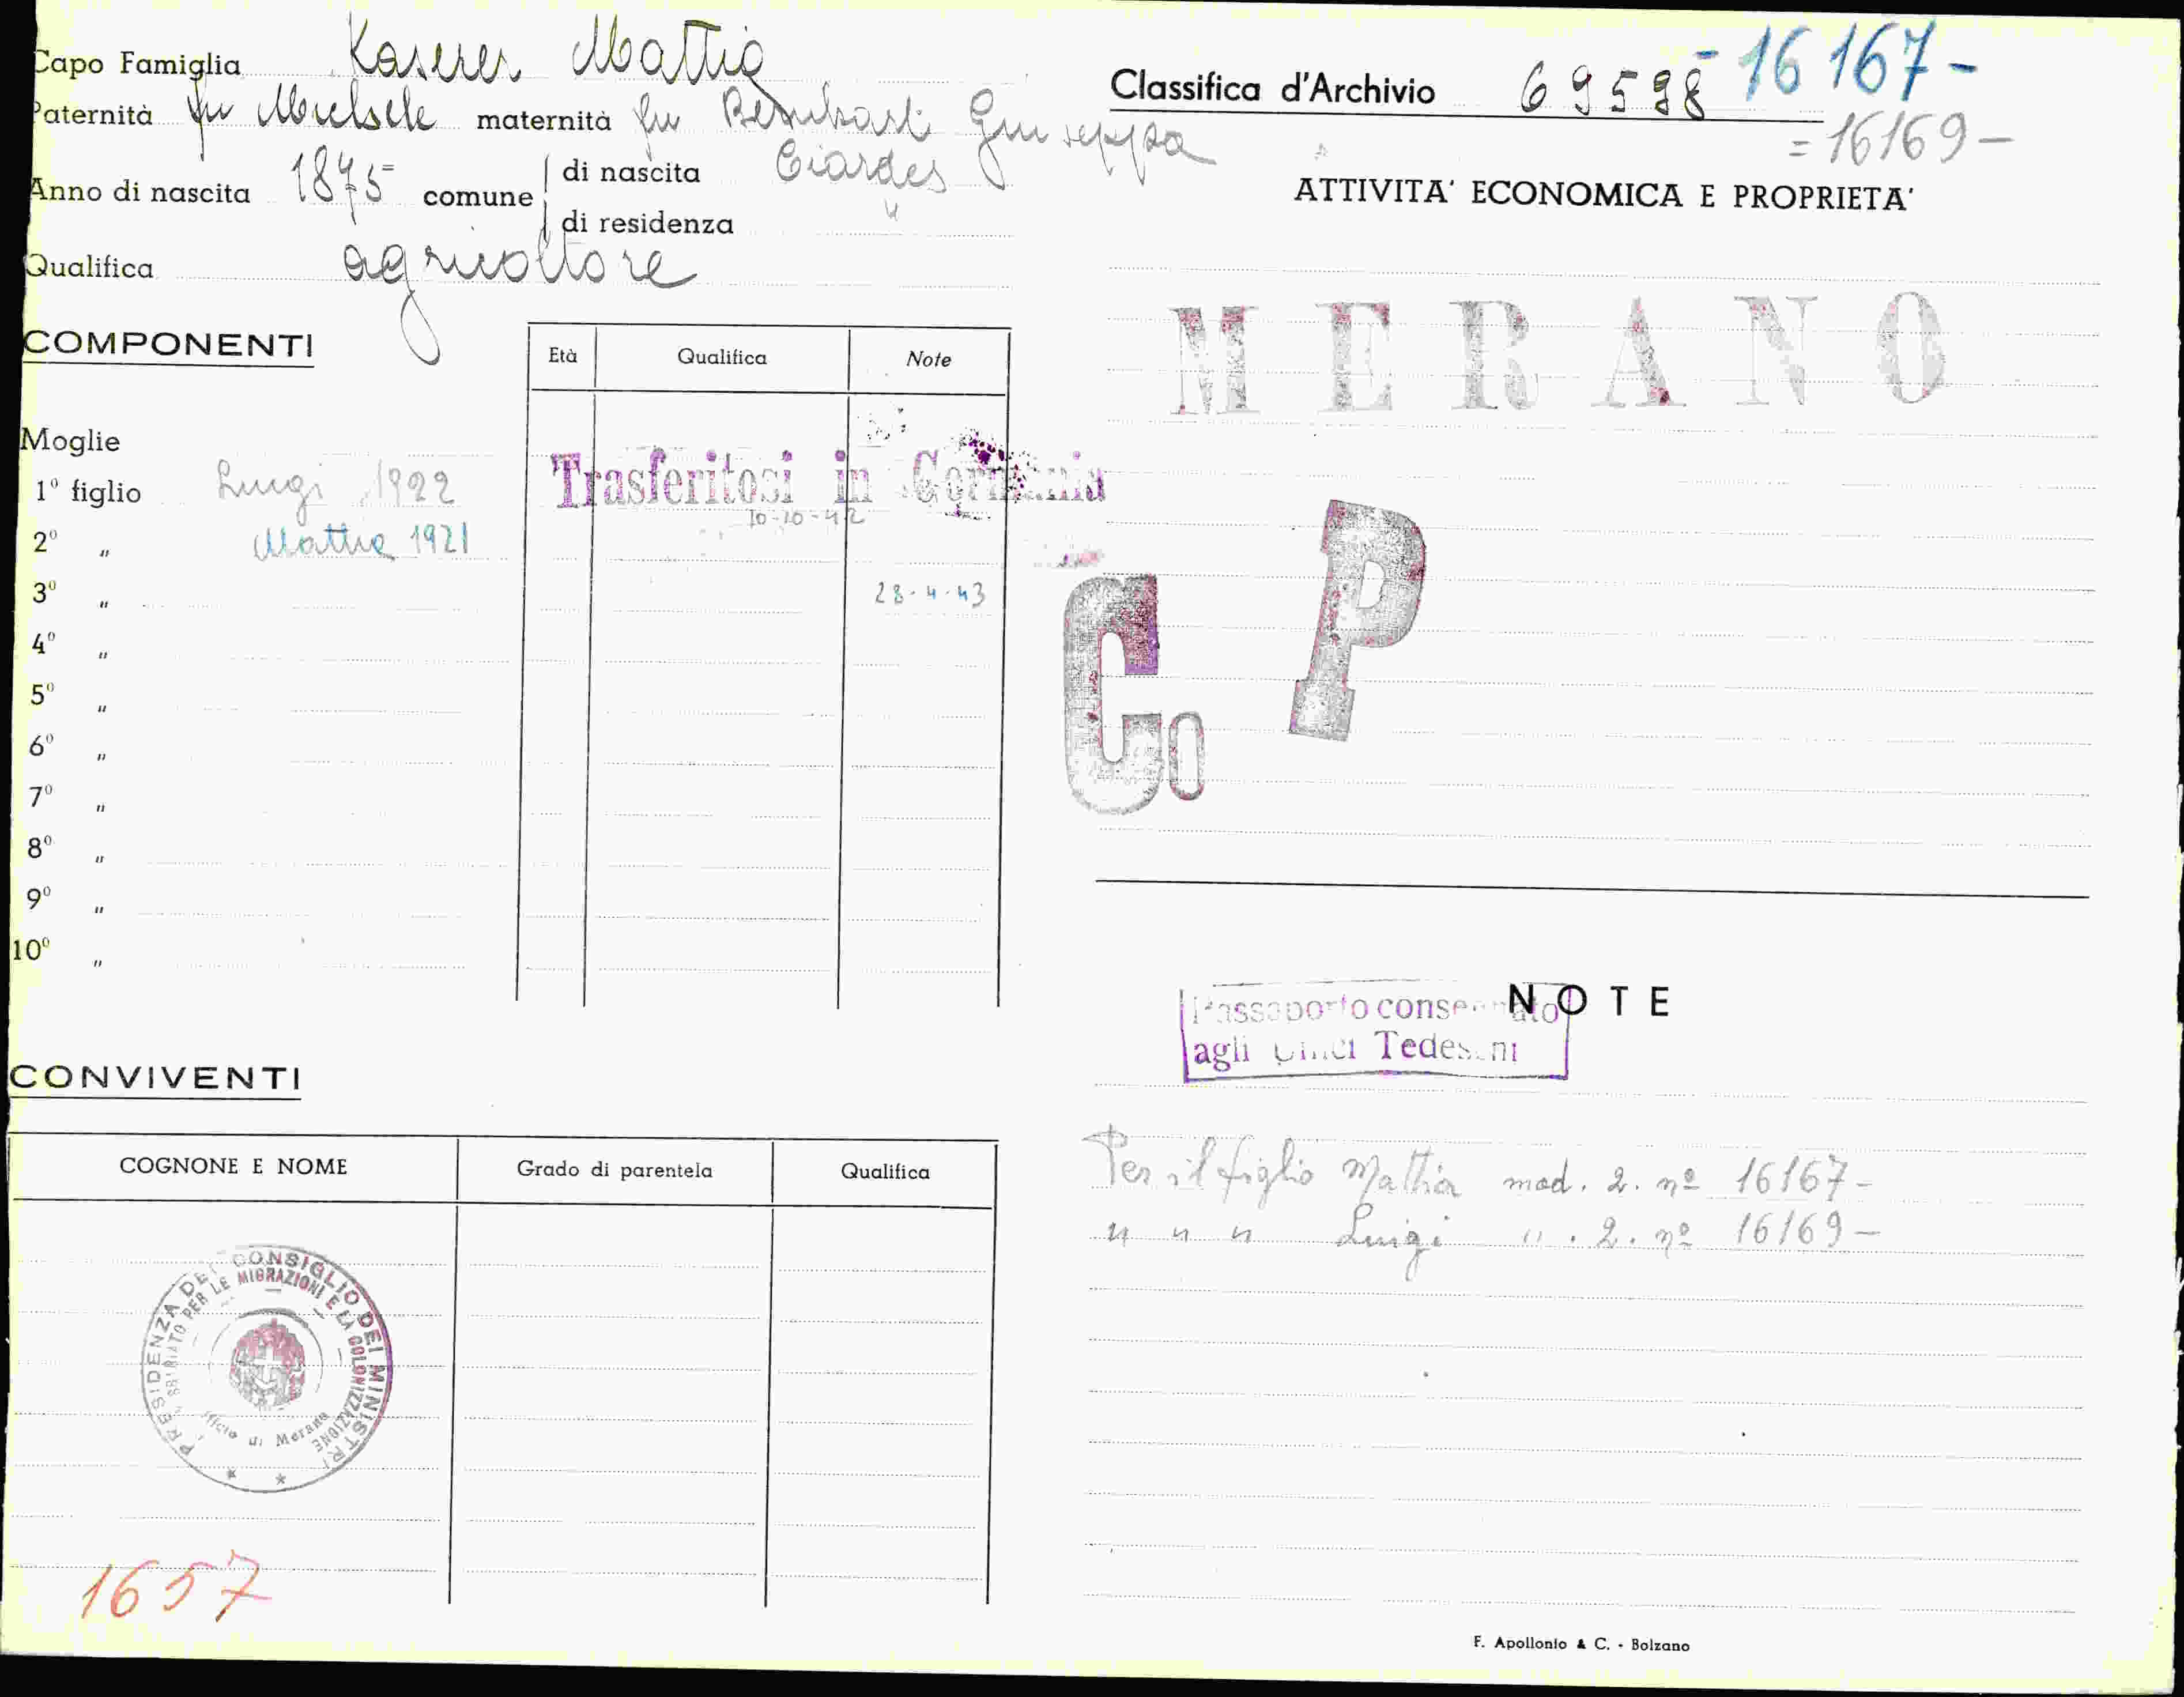 Capo Famiglia Kaserer Mattia
Paternità fu Michele maternità fu Bernhart Giuseppa
Anno di nascita 1875 comune di nascita Ciardes
di residenza "
Qualifica agricoltore
COMPONENTI
Età Qualifica Note
Moglie
1º figlio Luigi 1922 Trasferitosi in Germania
10-10-42
2º " Mattia 1921
3º " 28-4-43
4º "
5º "
6º "
7º "
8º "
9º "
10º "
CONVIVENTI
COGNONE E NOME Grado di parentela Qualifica
PRESIDENZA DEL CONSIGLIO DEI MINISTRI
PER LE MIGRAZIONI E LA COLONIZZAZIONE
di Merano
1657
Classifica d'Archivio 69598 - 16167 -
= 16169 -
ATTIVITA' ECONOMICA E PROPRIETA'
MERANO
P
Co
NOTE
Passaporto consegnato
agli Uffici Tedeschi
Per il figlio Mattia mod. 2. nº 16167 -
" " " Luigi " . 2. nº 16169 -
F. Apollonio & C. - Bolzano